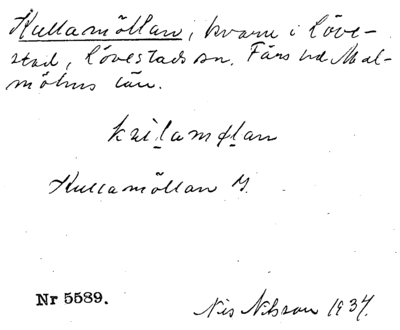 Kullamöllan, kvarn i Löve-
stad, Lövestads sn. Färs hd Mal-
möhus län.
Kullamöllan
Nr 5589.
Nils Nilsson 1937.